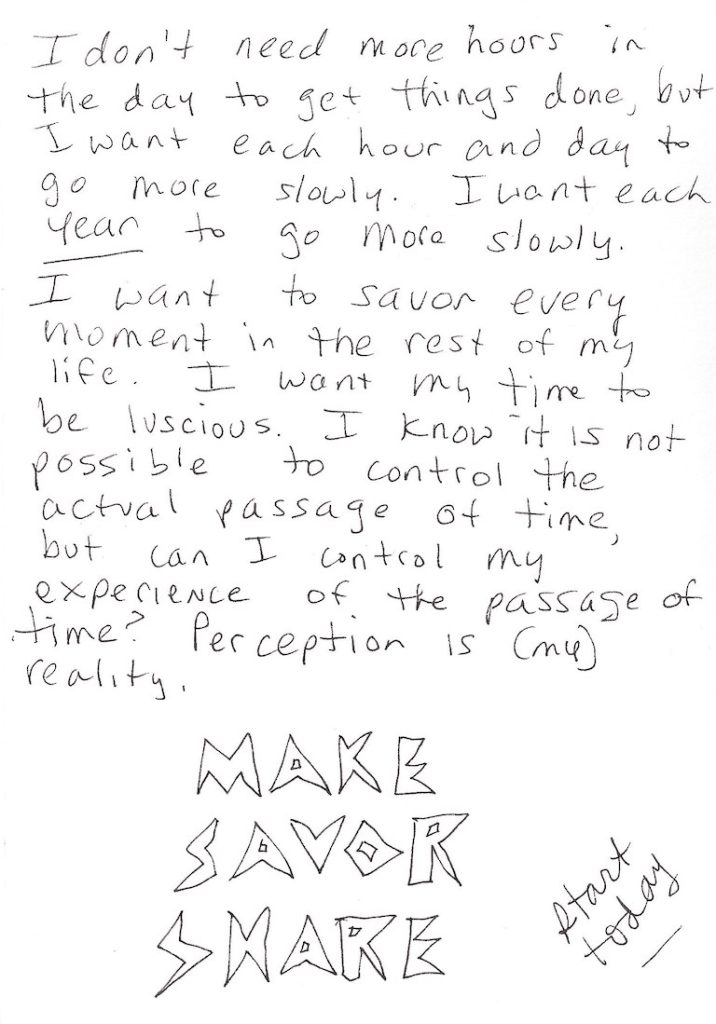 I don't need more hours in
the day to get things done, but
I want each hour and day to
go more slowly. I want each
year to go more slowly.
I want to savor every
moment in the rest of my
life. I want my time to
be luscious. I know it is not
possible to control the
actual passage of time,
but can I control my
experience of the passage of
time? Perception is (my)
reality.
MAKE
SAVOR
SHARE
Start
today